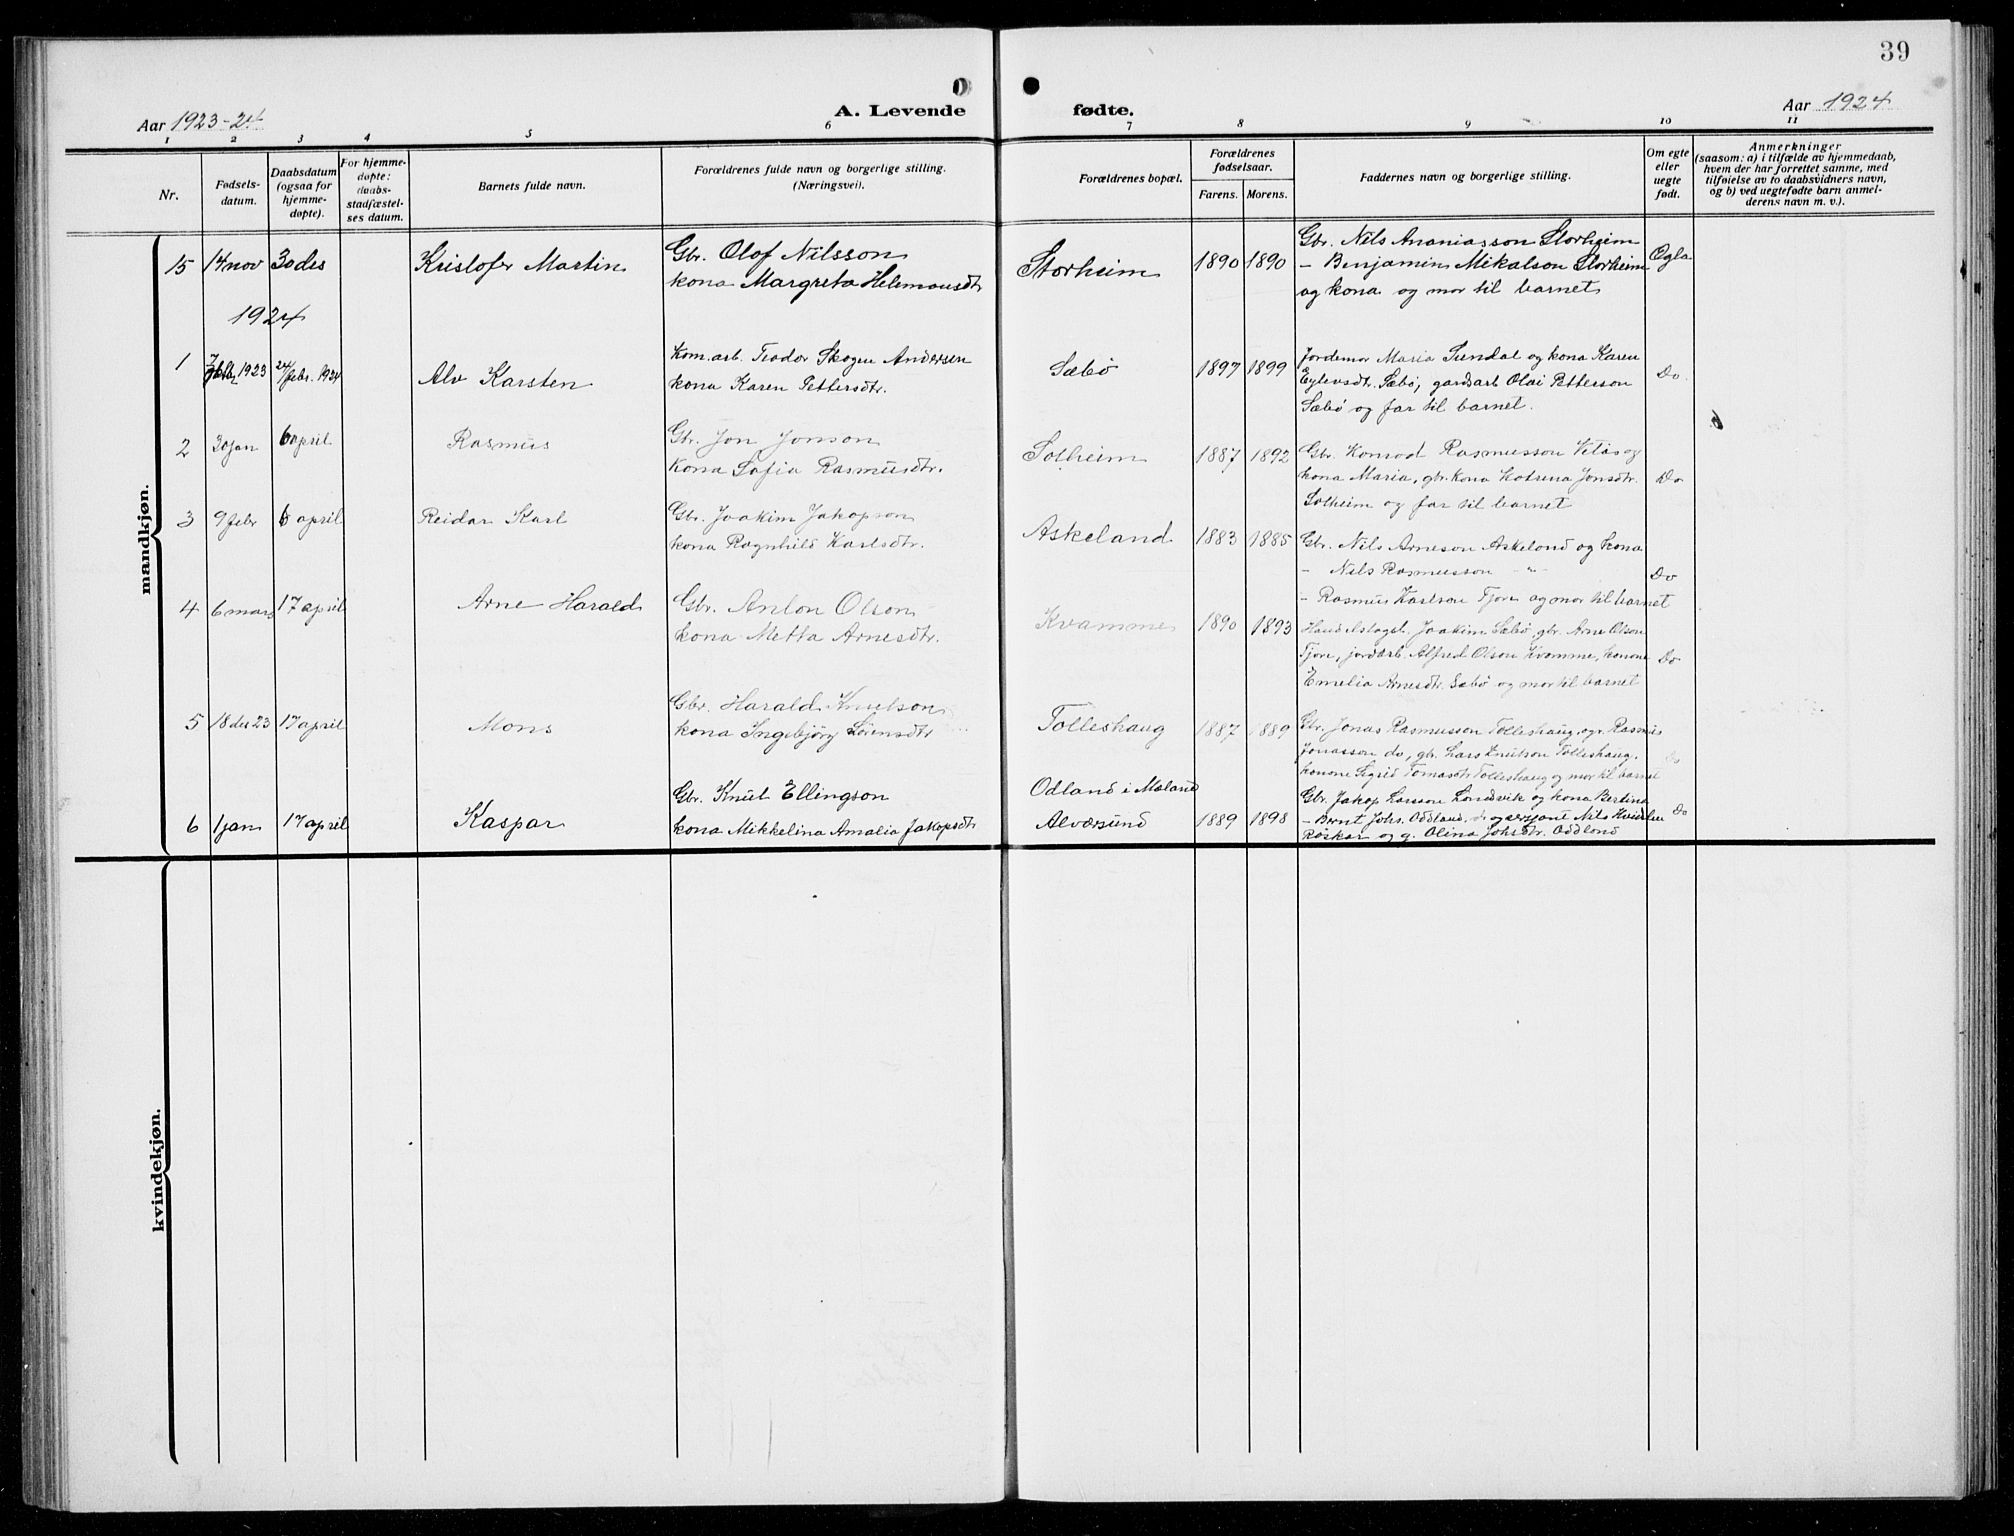 39
Aar 1923-24
A. Levende
fødte.
Aar 1924
1 2 3 4 5 6 7 8 9 10 11
Nr.
Fødsels-
datum.
Daabsdatum
(ogsaa for
hjemme-
døpte).
For hjemme-
døpte:
daabs-
stadfæstel-
ses datum.
Barnets fulde navn.
Forældrenes fulde navn og borgerlige stilling.
(Næringsvei).
Forældrenes bopæl.
Forældrenes
fødselsaar.
Farens. Morens.
Faddernes navn og borgerlige stilling.
Om egte
eller
uegte
født.
Anmerkninger
(saasom: a) i tilfælde av hjemmedaab,
hvem der har forrettet samme, med
tilføielse av to daabsvidners navn,
og b) ved uegtefødte barn anmel-
derens navn m. v.).
mandkjøn.
15 14 nov 30 des Kristofer Martin
Gbr. Olof Nilsson
kona Margreta Helemansdt
Storheim 1890 1890
Gbr. Nils Ananiasson Storheim
- Benjamin Mikalson Storheim
og kona og mor til barnet
Egta
1924
1 1923 24/febr. 1924 Alv Karsten
Kom.arb. Teodor Skogen Andersen
kona Karen Pettersdtr.
Sæbø 1897 1899
Jordemor Maria Sundal og kona Karen
Sæbø, gardsarb Olai Petterson
Sæbø og far til barnet.
Do.
2 30 jan 6 april Rasmus
Gbr. Jon Jonson
kona Sofia Rasmusdtr.
Solheim 1887 1892
Gbr. Konrad Rasmusson Vetås og
kona Maria, gbr. kona Katrina Jonsdtr.
Solheim og far til barnet
Do
3 9 febr 6 april Reidar Karl
Gbr. Joakim Jakopson
kona Ragnhild Karlsdtr.
Askeland 1883 1885
Gbr. Nils Arneson Askeland og kona
- Nils Rasmusson - " -
- Rasmus Karlson Fjon og mor til barnet
Do
4 6 mars 17 april Arne Harald
Gbr. Anton Olson
kona Metta Arnesdtr.
Kvamme 1890 1893
Handelsbogst. Joakim Sæbø, gbr. Arne Olson
jordarb. Alfred Olson Kvamme, konone
Emelia Arnesdtr. Sæbø og mor til barnet
Do
5 18 des 23 17 april Mons
Gbr. Harald Knutson
kona Ingebjørg Sørensdtr
Tolleshaug 1887 1889
Gbr. Jonas Rasmusson Tolleshaug, gbr. Rasmus
Jonasson do, gbr. Lars Knutson Tolleshaug.
konone Sigrid Tomasdtr Tolleshaug og mor til barnet
Do
6 1 jan 17 april Kaspar
Gbr. Knut Ellingson
kona Mikkelina Amalia Jakopsdt
Odland i Mæland
Alværsund 1889 1898
Gbr. Jakop Larsson Landsvik og kona Bertina
- Bernt Johs. Oddland, Nils
og g. Olina Johsdtr. Oddland
Do
kvindekjøn.